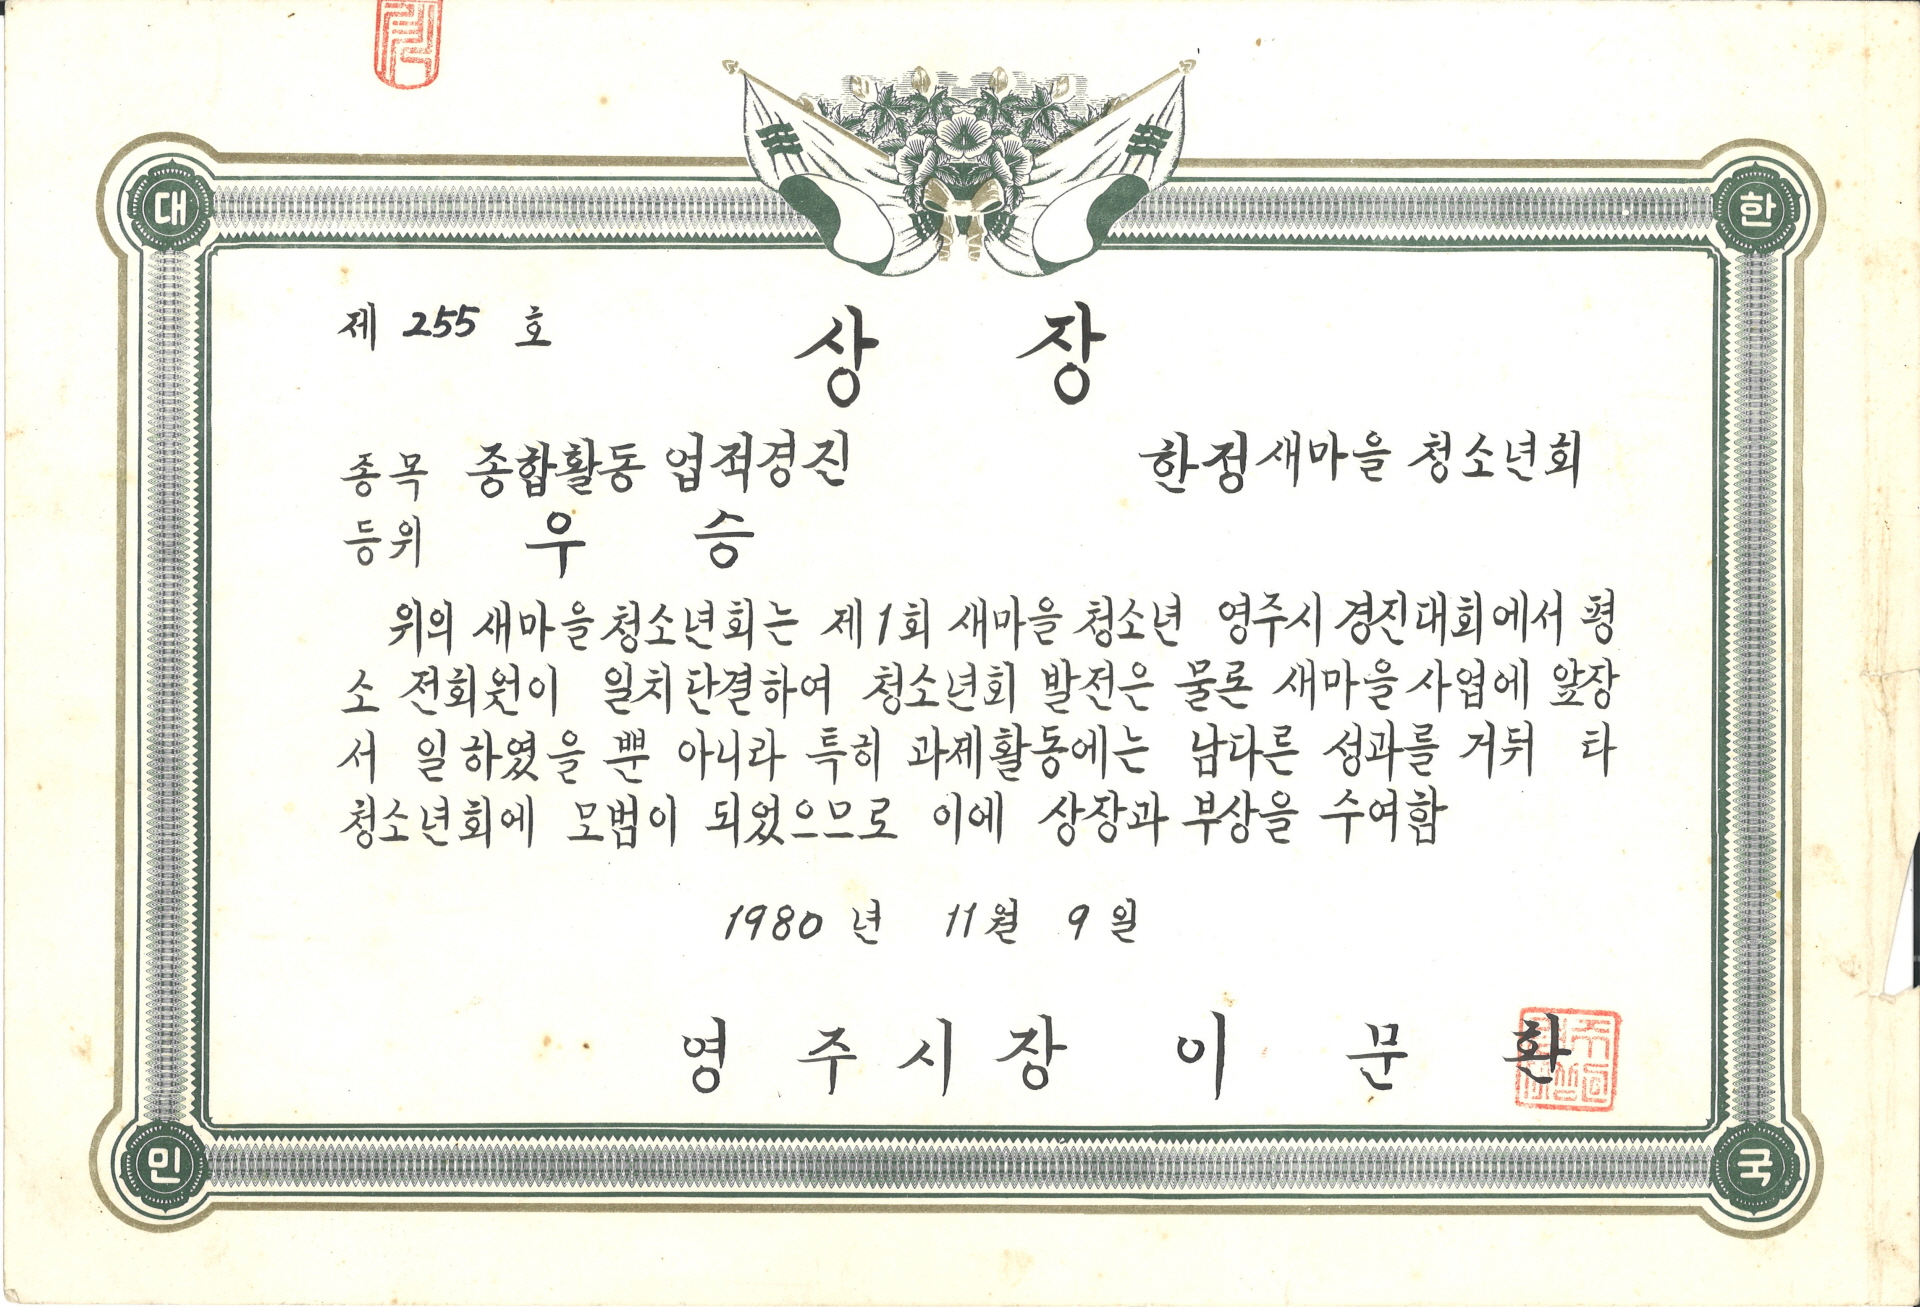 대 한
제 255 호
상 장
종목 종합활동 업적경진 한정새마을 청소년회
등위 우 승
위의 새마을청소년회는 제1회 새마을 청소년 영주시 경진대회에서 평
소 전회원이 일치단결하여 청소년회 발전은 물론 새마을사업에 앞장
서 일하였을 뿐 아니라 특히 과제활동에는 남다른 성과를 거둬 타
청소년회에 모범이 되었으므로 이에 상장과 부상을 수여함
1980년 11월 9일
영 주 시 장 이 문 환
민 국